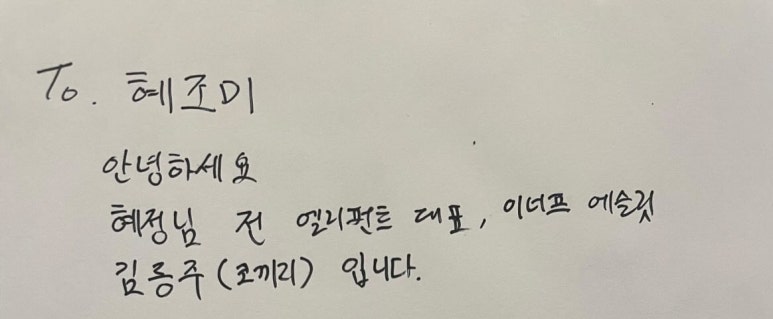 To. 혜조미
안녕하세요
혜정님 전 엘리펀트 대표, 이너프 에슬릿
김릉주(코끼리) 입니다.